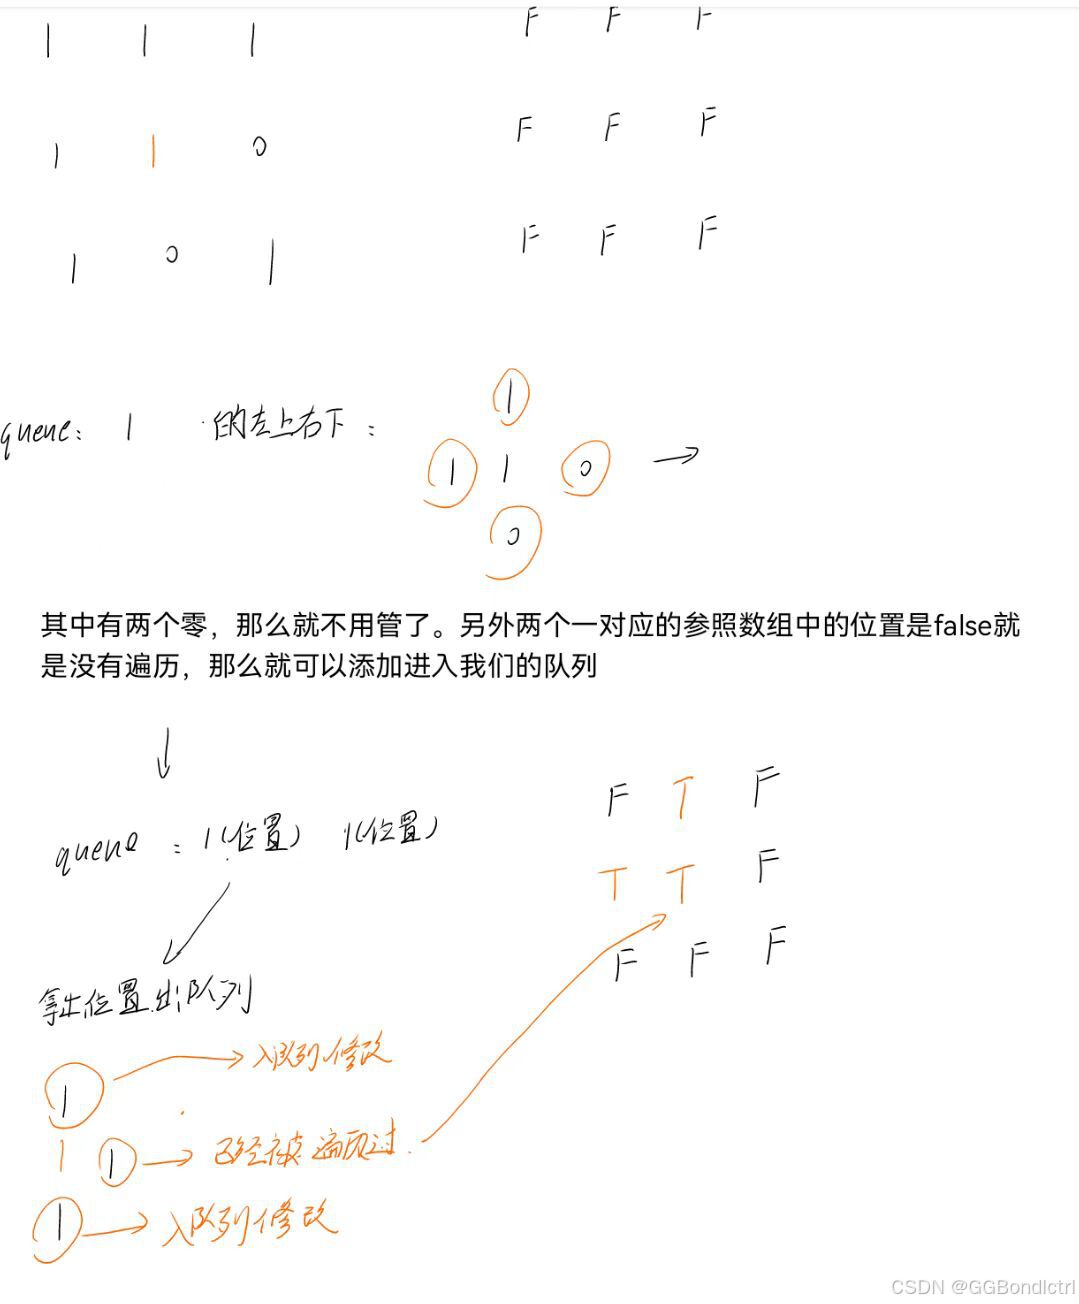 1 1 1 F F F
1 1 0 F F F
1 0 1 F F F
1
queue: 1 的左上右下：
1 1 0
0
其中有两个零，那么就不用管了。另外两个一对应的参照数组中的位置是false就
是没有遍历，那么就可以添加进入我们的队列
F T F
queue : 1(位置) 1(位置)
T T F
F F F
拿出位置出队列
入队列修改
1
1 1 已经被遍历过.
1 入队列修改
CSDN @GGBondlctrl